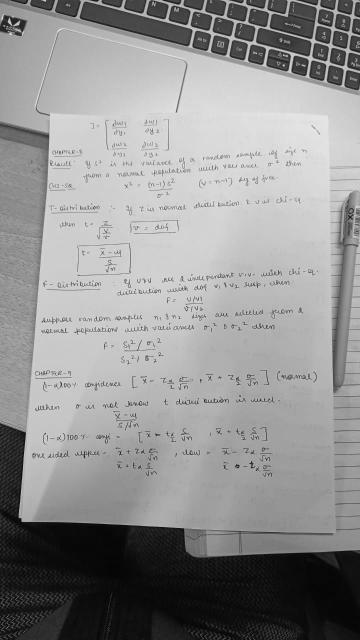 J = [ ∂w1/∂y1 ∂w1/∂y2
∂w2/∂y1 ∂w2/∂y2 ]
CHAPTER-8
Result: If S² is the variance of a random sample of size n
from a normal population with variance σ² then
CHI-SQ x² = (n-1)S²/σ² (v=n-1) deg of free.
T-Distribution :- If Z is normal distribution & V is chi-sq
then t = Z/√(V/v) [v = dof]
t = (x̄ - u)/(S/√n)
F-Distribution :- If U & V are 2 independent r.v. with chi-sq.
distribution with dof v1 & v2 resp, then
F = (U/v1)/(V/v2)
suppose random samples n1 & n2 sizes are selected from 2
normal populations with variances σ1² & σ2² then
F = (S1²/σ1²)/(S2²/σ2²)
CHAPTER-9
(1-α)100% confidence [x̄ - Zα/2 σ/√n, x̄ + Zα/2 σ/√n] (normal)
when σ is not know t distribution is used.
(x̄ - u)/(S/√n)
(1-α)100% confi - [x̄ - tα/2 S/√n, x̄ + tα/2 S/√n]
one sided upper - x̄ + Zα σ/√n, low - x̄ - Zα σ/√n
x̄ + tα S/√n x̄ - tα σ/√n